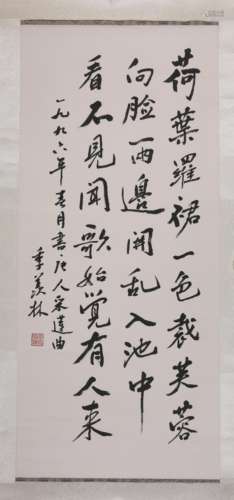 荷葉羅裙一色裁芙蓉
向脸兩邊開乱入池中
看不見闻歌始觉有人来
一九九六年春月書唐人采莲曲
季羡林